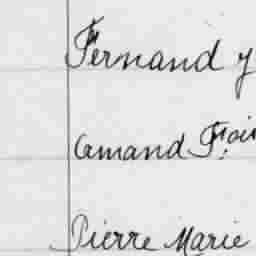 Fernand
Amand
Pierre Marie